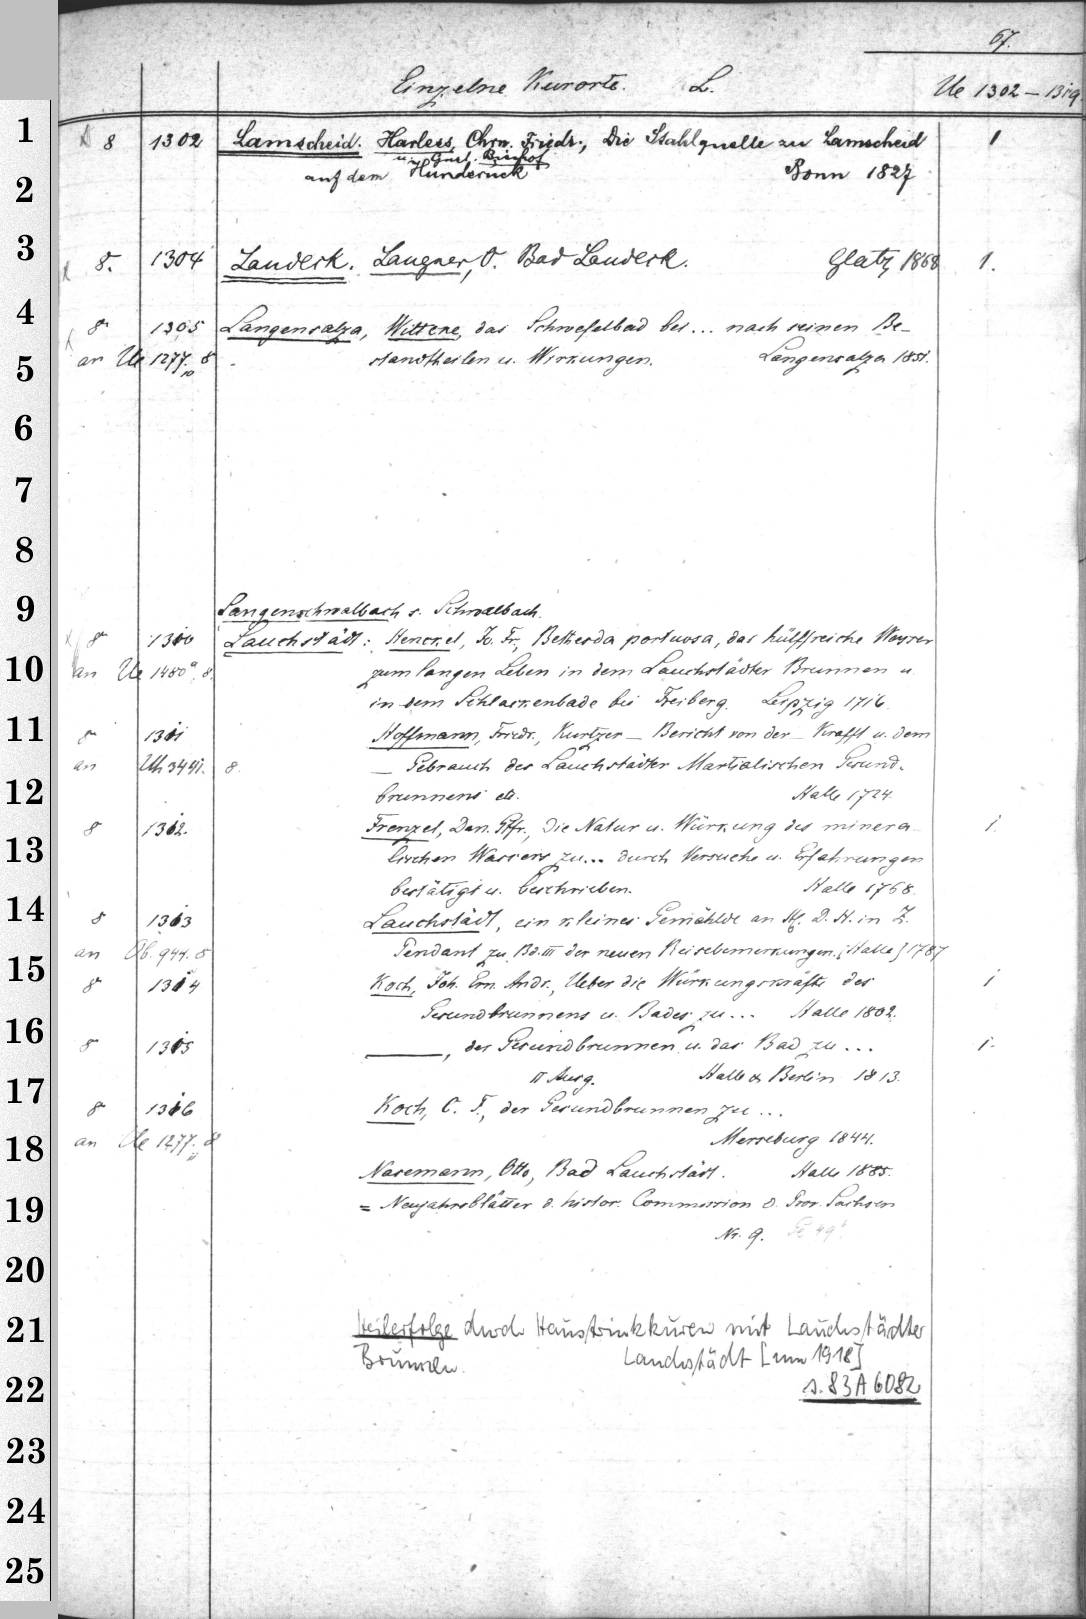 67.
Einzelne Kurorte. L. Ue 1302 – 1319
1
8 1302 Lamscheid. Harless, Chrn. Friedr., Die Stahlquelle zu Lamscheid 1
u. Gust. Bischof
2
auf dem Hundsrück Bonn 1827
3
8. 1304 Landeck. Langner, O. Bad Landeck. Glatz 1868 1.
4
8 1305 Langensalza, Wittcke, das Schwefelbad bei ... nach seinen Be-
5
an Ue 1277. 8 standtheilen u. Wirkungen. Langensalza 1851.
10
6
7
8
9
Langenschwalbach s. Schwalbach.
8 1310 Lauchstädt: Henckel, Jo. Fr., Bethesda portuosa, das hülfreiche Wasser
10
an Ue 1480a. 8. zum langen Leben in dem Lauchstädter Brunnen u.
in dem Schlackenbade bei Freiberg. Leipzig 1716.
11
8 1311 Hoffmann, Friedr., Kurtzer – Bericht von der – Krafft u. dem
an Uh 3441. 8. – Gebrauch des Lauchstädter Martialischen Gesund-
12
brunnens etc. Halle 1724.
8 1312. Frenzel, Dan. Gfr., Die Natur u. Würkung des minera- 1.
13
lischen Wassers zu... durch Versuche u. Erfahrungen
bestätigt u. beschrieben. Halle 1768.
14
8 1313 Lauchstädt, ein kleines Gemählde an H. D. H. in Z.
an Ob. 944. 8 Pendant zu Bd. III der neuen Reisebemerkungen. [Halle] 1787
15
8 1314 Koch, Joh. Ern. Andr., Ueber die Würkungskräfte des 1
Gesundbrunnens u. Bades zu ... Halle 1802.
16
8 1315 ———, der Gesundbrunnen u. das Bad zu ... 1.
II Ausg. Halle & Berlin 1813.
17
8 1316 Koch, C. T., der Gesundbrunnen zu ...
18
an Ue 1277. 8 Merseburg 1844.
11
Nasemann, Otto, Bad Lauchstädt. Halle 1885.
19
= Neujahrsblätter d. histor. Commission d. Prov. Sachsen
Nr. 9.
20
21
Heilerfolge durch Haustrinkkuren mit Lauchstädter
Brunnen. Lauchstädt [um 1918]
22
s. 83 A 6082
23
24
25